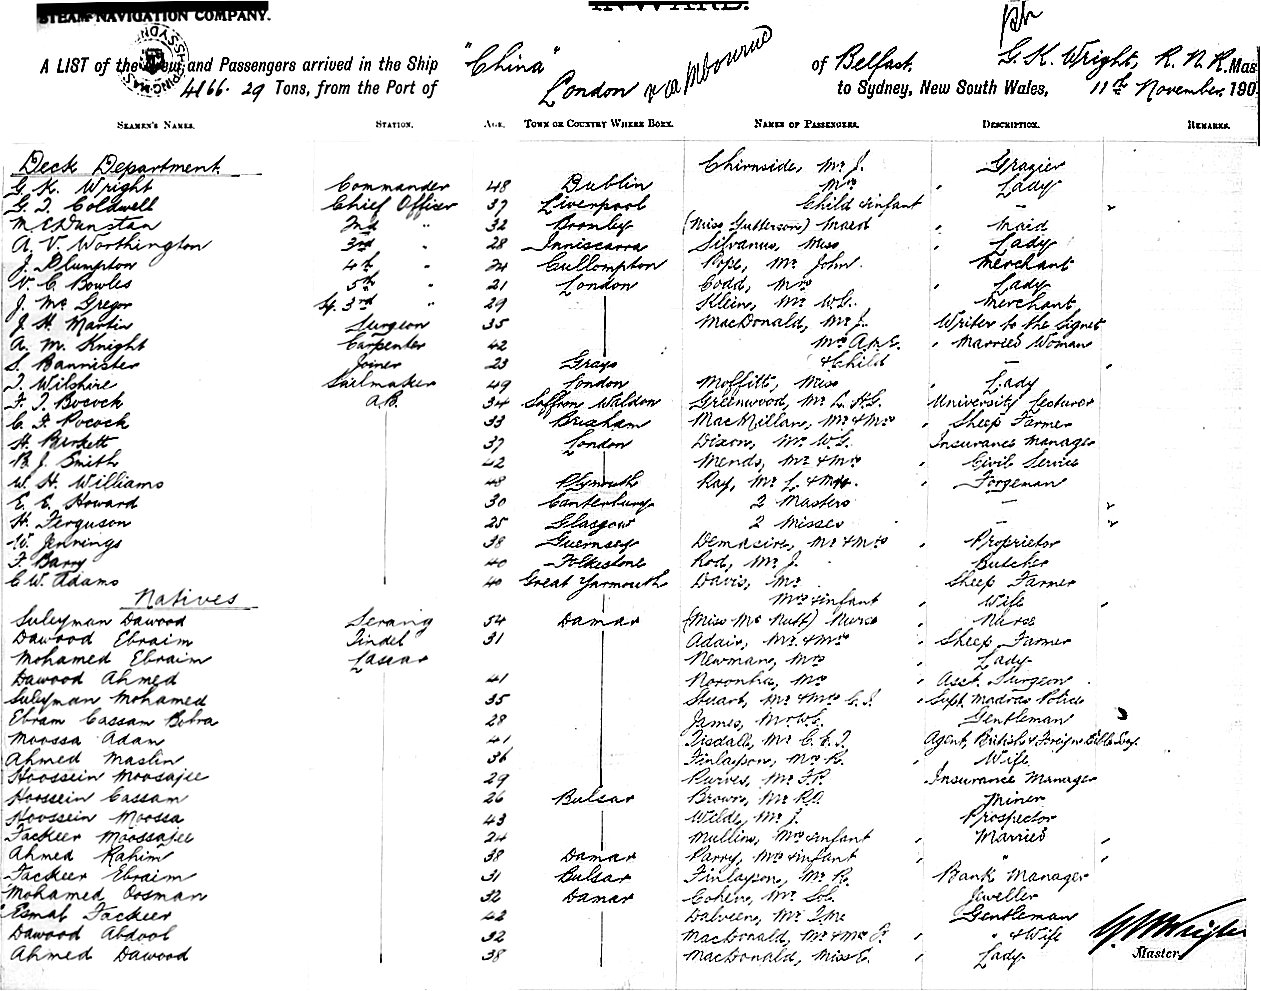 STEAM NAVIGATION COMPANY. INWARD.
A LIST of the Crew and Passengers arrived in the Ship "China" of Belfast, G. K. Wright, R.N.R. Mas
4166.29 Tons, from the Port of London via Melbourne to Sydney, New South Wales, 11th November, 190
SEAMEN'S NAMES. STATION. AGE. TOWN OR COUNTRY WHERE BORN. NAMES OF PASSENGERS. DESCRIPTION. REMARKS.
Deck Department Chirnside, Mr J. Grazier
G. K. Wright Commander 48 Dublin Mrs " Lady
G. I. Coldwell Chief Officer 37 Liverpool Child & infant –
McDunstan 2nd " 32 Bromley (Miss Gutterson) Maid " Maid
A. V. Worthington 3rd " 28 Inniscarra Silvanus, Miss " Lady
J. Plumpton 4th " 24 Cullompton Pope, Mr John. Merchant
V. C. Bowles 5th " 21 London Codd, Mrs " Lady
J. Mc Gregor 3rd " 29 Klein, Mr W.G. Merchant
J. H. Martin Surgeon 35 MacDonald, Mr J. Writer to the Signet
A. M. Knight Carpenter 42 Mrs A.M.E. " Married Woman
S. Bannister Joiner 23 Grays & Child –
T. Wilshire Sailmaker 49 London Moffitt, Miss " Lady
F. J. Bocock A.B. 34 Saffron Waldon Greenwood, Mr L. H.G. University Lecturer
C. F. Pocock 33 Brixham MacMillan, Mr & Mrs " Sheep Farmer
H. Birkett 37 London Dixon, Mr W.G. Insurance Manager
B. J. Smith 42 Mends, Mr & Mrs " Civil Service
W. H. Williams 48 Plymouth Ray, Mr L. & Mrs " Forgeman
E. E. Howard 30 Canterbury 2 Masters –
H. Ferguson 25 Glasgow 2 Misses –
W. Jennings 38 Guernsey Demacire, Mr & Mrs " Proprietor
F. Barry 40 Folkestone Rod, Mr J. Butcher
C. W. Adams 40 Great Yarmouth Davis, Mr Sheep Farmer
Natives Mrs & infant " Wife
Suleyman Dawood Serang 54 Daman (Miss Mc Nutt) Nurse " Nurse
Dawood Ebraim Tindel 31 Adair, Mr & Mrs " Sheep Farmer
Mohamed Ebraim Lascar Newman, Mrs " Lady
Dawood Ahmed 41 Noronha, Mr Asst. Surgeon
Suleyman Mohamed 35 Stuart, Mr & Mrs C. J. " Supt. Madras Police
Ebram Cassam Bobra 28 James, Mr W.G. Gentleman
Moossa Adam 41 Tisdall, Mr C. E. J. Agent, British & Foreign Bible Soc.
Ahmed Maslin 36 Finlayson, Mrs R. " Wife
Hoossein Moosajee 29 Purves, Mr F.R. Insurance Manager
Hoossein Cassam 26 Bulsar Brown, Mr R.A. Miner
Hoossein Moossa 43 Wilde, Mr J. Prospector
Fackeer Moossajee 24 Mullins, Mrs & infant " Married
Ahmed Rahim 38 Daman Parry, Mrs & infant " "
Fackeer Ebraim 31 Bulsar Finlayson, Mr R. Bank Manager
Mohamed Oosman 32 Daman Cohen, Mr Sol. Jeweller
Esmal Fackeer 42 Dalveen, Mr Gentleman
Dawood Abdool 32 MacDonald, Mr & Mrs P. " " & Wife
Ahmed Dawood 38 MacDonald, Miss E. " Lady
G K Wright
Master.